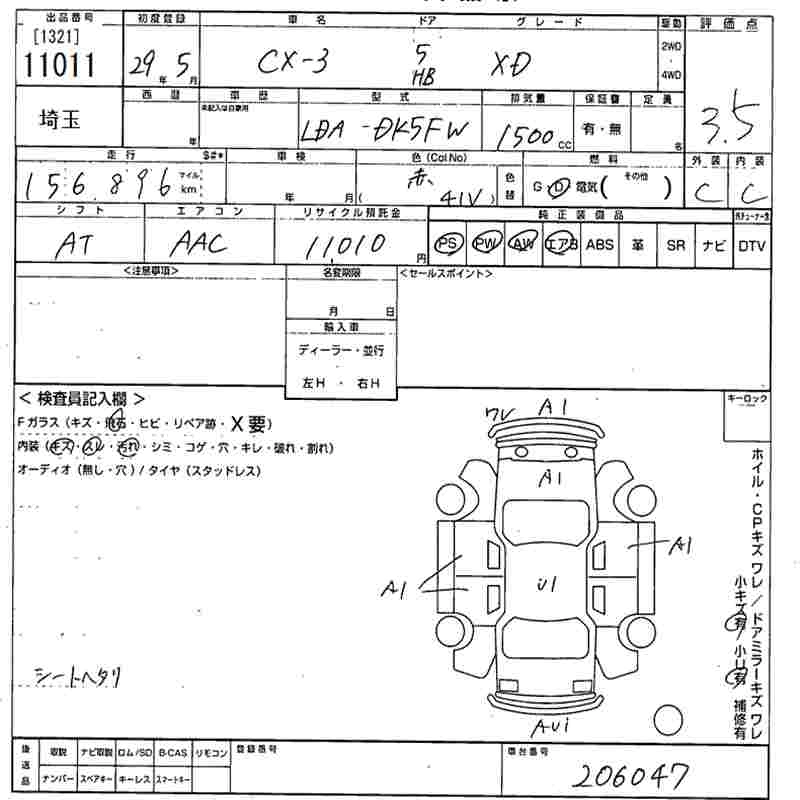 出品番号 初度登録 車名 ドア グレード 駆動 評価点
[1321]
11011 29年 5月 CX-3 5 HB XD 2WD ・ 4WD 3.5
埼玉 西暦 年 車歴 未記入は自家用 型式 排気量 保証書 定員
LDA-DK5FW 1500cc 有・無 名
走行 S#* 車検 色(Col No) 燃料 外装 内装
156,896 マイル km 年 月 赤 ( 41V ) 色替 G・D・電気( その他 ) C C
シフト エアコン リサイクル預託金 純正装備品
AT AAC 11,010円 PS PW AW エアB ABS 革 SR ナビ DTV
<注意事項> 名変期限 <セールスポイント>
月 日
輸入車
ディーラー・並行
左H ・ 右H
<検査員記入欄> キーロック
Fガラス(キズ・飛石・ヒビ・リペア跡・X要)
内装(キズ・スレ・汚れ・シミ・コゲ・穴・キレ・破れ・割れ)
オーディオ(無し・穴)/タイヤ(スタッドレス)
ワレ A1
A1
A1
A1 U1
AU1
シートヘタリ
ホイル・CPキズワレ/ドアミラーキズワレ
小キズ有/小U有 補修有
後送品 取説 ナビ取説 ロム/SD B-CAS リモコン 登録番号 車台番号
ナンバー スペアキー キーレス スマートキー 206047